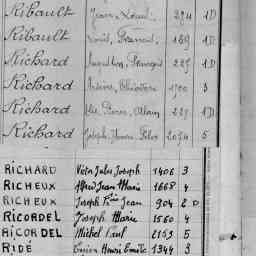 Ribault Jean, Louis. 294 1D
Ribault Louis, Francois. 189 1D
Richard 227 1D
Richard 1700 3
Richard Pierre, Alain 227 1D
Richard Joseph, 2074 5
RICHARD Victor Jules Joseph 1406 3
RICHEUX Alfred Jean Marie 1668 4
RICHEUX Joseph Jean 904 2D
RICORDEL Joseph Marie 1560 4
RICORDEL Michel Paul 2153 5
RIDÉ Lucien Henri Emile 1344 3